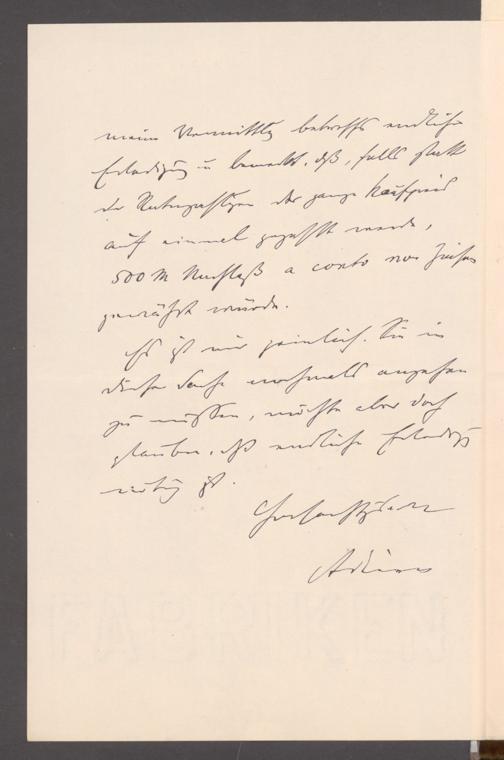 meine Vermittlg betreffs endliche
Erledigg u. bemerkt, dß, falls statt
der Ratenzahlgen der ganze Kaufpreis
auf einmal gezahlt werde,
500 M Nachlaß a conto von Zinsen
gewährt würde.
Es ist mir peinlich, Sie in
dieser Sache nochmals angehen
zu müssen, möchte aber doch
glauben, dß endliche Erledigg
nötig ist.
Hochachtgsvoll